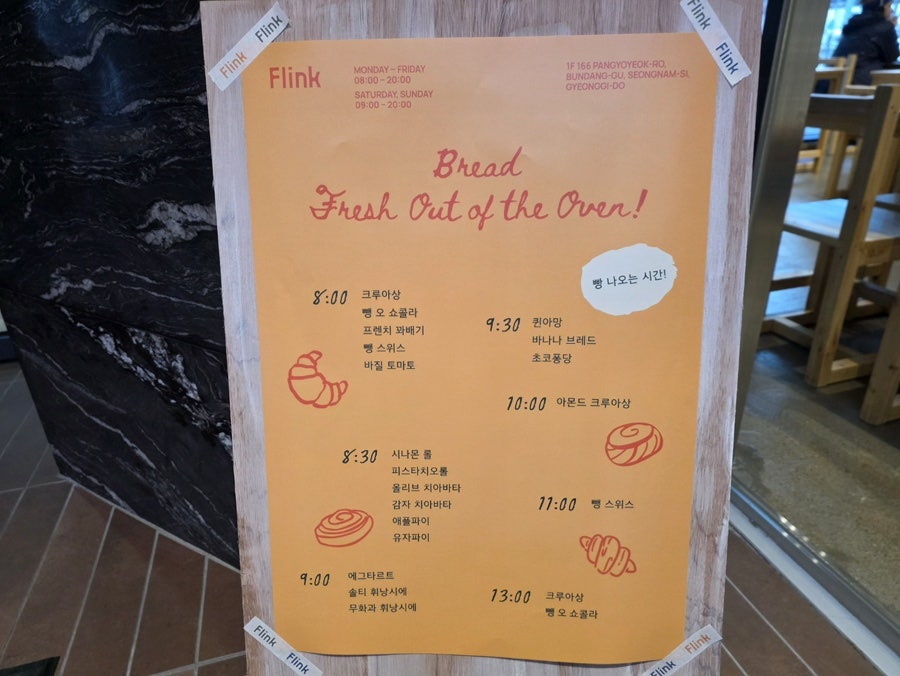 Flink Flink
Flink Flink
Flink
MONDAY – FRIDAY
08:00 – 20:00
SATURDAY, SUNDAY
09:00 – 20:00
1F 166 PANGYOYEOK-RO,
BUNDANG-GU, SEONGNAM-SI,
GYEONGGI-DO
Bread
Fresh Out of the Oven!
빵 나오는 시간!
8:00 크루아상
뺑 오 쇼콜라
프렌치 꽈배기
뺑 스위스
바질 토마토
9:30 퀸아망
바나나 브레드
초코퐁당
10:00 아몬드 크루아상
8:30 시나몬 롤
피스타치오롤
올리브 치아바타
감자 치아바타
애플파이
유자파이
11:00 뺑 스위스
9:00 에그타르트
솔티 휘낭시에
무화과 휘낭시에
13:00 크루아상
뺑 오 쇼콜라
Flink Flink
Flink Flink